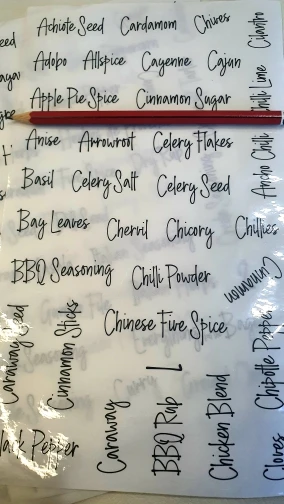 Achiote Seed Cardamom Chives
Cilantro
Adobo Allspice Cayenne Cajun
Apple Pie Spice Cinnamon Sugar
Chilli Lime
Anise Arrowroot Celery Flakes
Ancho Chilli
Basil Celery Salt Celery Seed
Bay Leaves Chervil Chicory Chillies
BBQ Seasoning Chilli Powder
Cinnamon
Caraway Seed
Cinnamon Sticks
Chinese Five Spice
Chipotle Pepper
Black Pepper
Caraway
BBQ Rub
Chicken Blend
Cloves